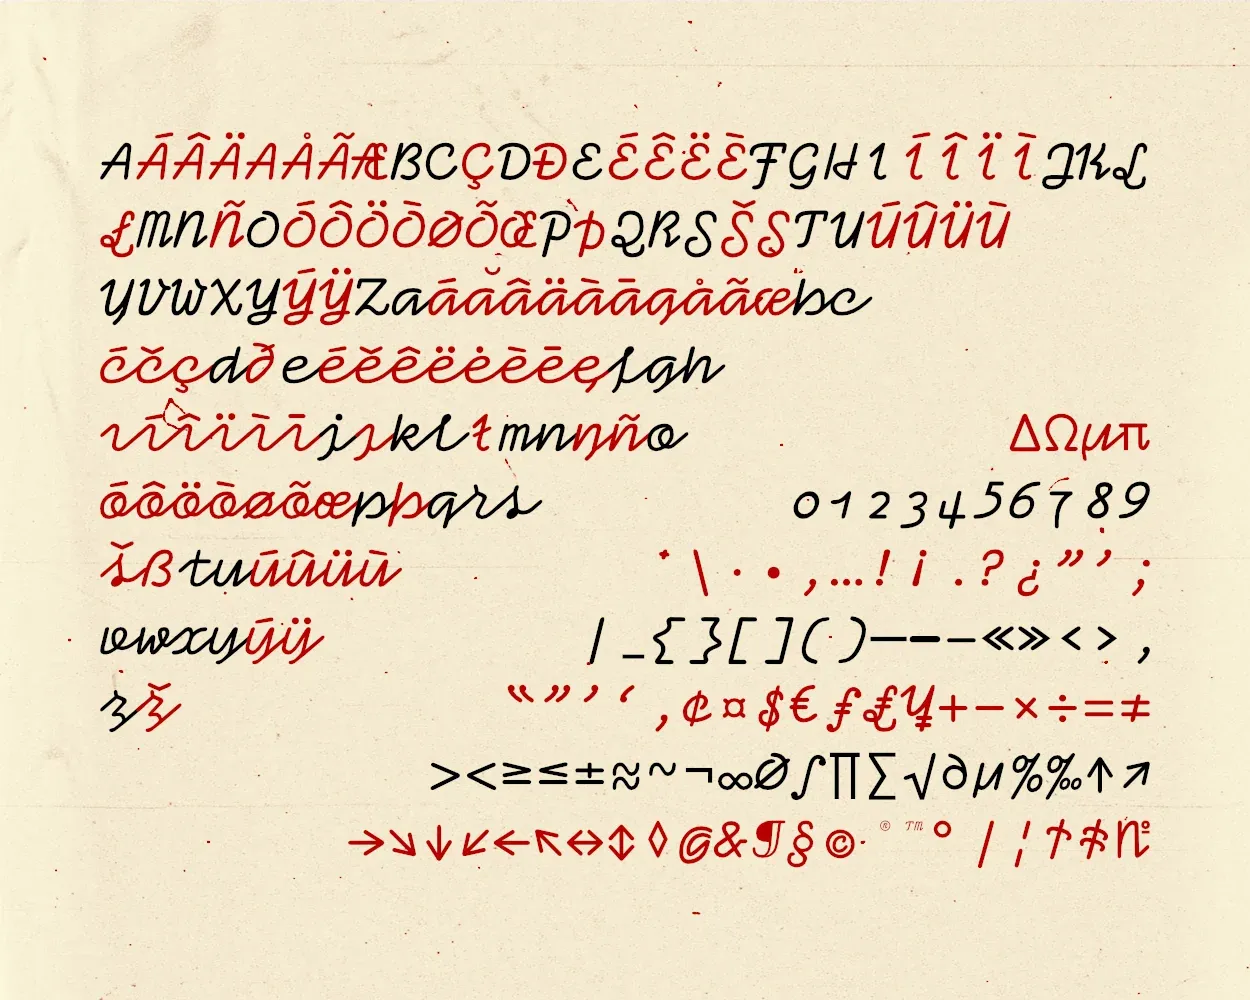 AÁÂÄÀÅÃÆBCÇDÐEÉÊËÈFGHIÍÎÏÌJKL
ŁMNÑOÓÔÖÒØÕŒPÞQRSŠŞTUÚÛÜÙ
YVWXYÝŸZaáăâäàāąåãæbc
ćčçdðeéěêëėèēęfgh
ıíîïìījȷklłmnŋño
óôöòøõœpþqrs ΔΩμπ
šßtuúûüù 0123456789
vwxyýÿ \·•,…!¡.?¿”’;
zž |_{}[]()—–-«»<>,
“”’‘,¢¤$€ƒ£¥+−×÷=≠
><≥≤±≈~¬∞Ø∫∏∑√∂µ%‰↑↗
→↘↓↙←↖↔↕◊@&¶§©®™°/¦†‡№